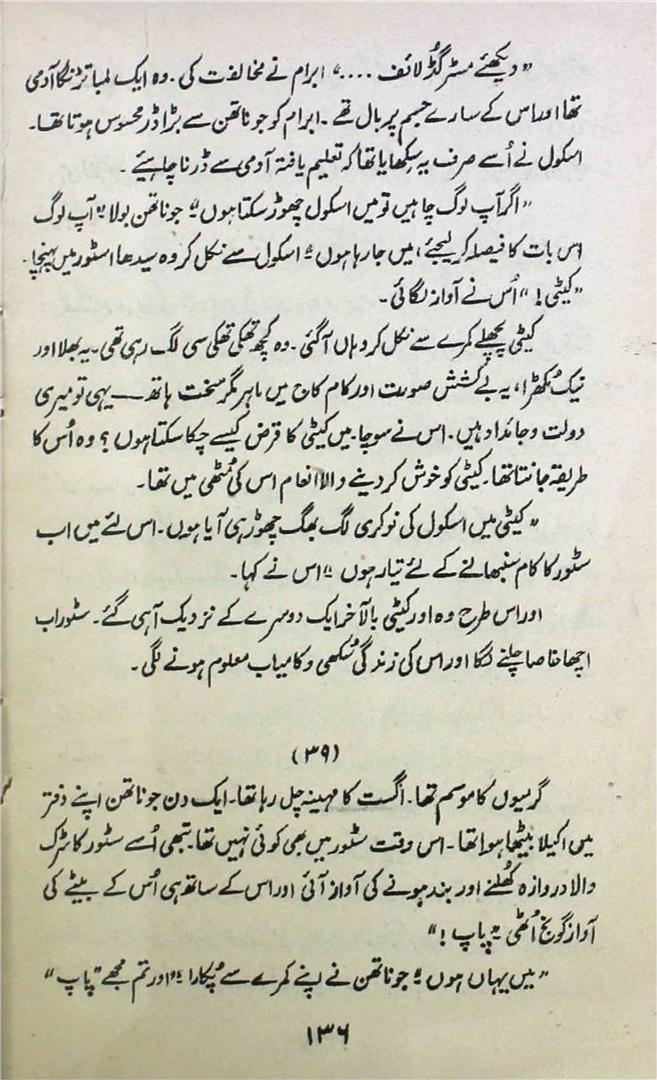 ”دیکھئے مسٹر گڈ لائف ....“ ابرام نے مخالفت کی۔ وہ ایک لمبا تڑنگا آدمی
تھا اور اس کے سارے جسم پر بال تھے۔ ابرام کو جوناتھن سے بڑا ڈر محسوس ہوتا تھا۔
اسکول نے اُسے صرف یہ سکھایا تھا کہ تعلیم یافتہ آدمی سے ڈرنا چاہیئے۔
”اگر آپ لوگ چاہیں تو میں اسکول چھوڑ سکتا ہوں“ جوناتھن بولا ”آپ لوگ
اس بات کا فیصلہ کر لیجئے، میں جا رہا ہوں“ اسکول سے نکل کر وہ سیدھا اسٹور میں پہنچا۔
”کیٹی!“ اُس نے آواز لگائی۔
کیٹی پچھلے کمرے سے نکل کر وہاں آگئی۔ وہ کچھ تھکی تھکی سی لگ رہی تھی۔ یہ بھلا اور
نیک مُکھڑا، یہ بے کشش صورت اور کام کاج میں ماہر مگر سخت ہاتھ — یہی تو میری
دولت و جائداد ہیں۔ اس نے سوچا۔ میں کیٹی کا قرض کیسے چکا سکتا ہوں؟ وہ اُس کا
طریقہ جانتا تھا۔ کیٹی کو خوش کر دینے والا انعام اس کی مُٹھی میں تھا۔
”کیٹی میں اسکول کی نوکری لگ بھگ چھوڑ ہی آیا ہوں۔ اس لئے میں اب
سٹور کا کام سنبھالنے کے لئے تیار ہوں“ اس نے کہا۔
اور اس طرح وہ اور کیٹی بالآخر ایک دوسرے کے نزدیک آ ہی گئے۔ سٹور اب
اچھا خاصا چلنے لگا اور اس کی زندگی سُکھی و کامیاب معلوم ہونے لگی۔
(۳۹)
گرمیوں کا موسم تھا۔ اگست کا مہینہ چل رہا تھا۔ ایک دن جوناتھن اپنے دفتر
میں اکیلا بیٹھا ہوا تھا۔ اس وقت سٹور میں بھی کوئی نہیں تھا۔ تبھی اُسے سٹور کا سڑک
والا دروازہ کھُلنے اور بند ہونے کی آواز آئی اور اس کے ساتھ ہی اُس کے بیٹے کی
آواز گونج اُٹھی ”پاپ!“
”میں یہاں ہوں“ جوناتھن نے اپنے کمرے سے پُکارا ”اور تم مجھے ”پاپ“
۱۳۶